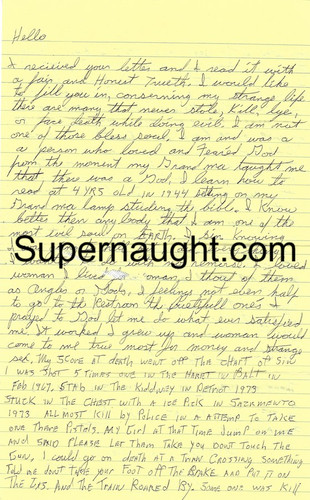 Hello
I recieved your letter and I read it with
a fair and Honest Trueth. I would like
to fill you in, conserning my strange life
there are many that never stole, Kill, lye,
or face death while doing evil. I am not
one of those bless soul, I am and was a
a person who loved and Feared God
from the moment my Grand ma taught me
that there was a God, I learn how to
read at 4 YRS old in 1944 sitting on my
Grand ma lamp studing the bible. I Know
better then any body that I am one of the
most evil soul on Earth. I knowing
Supernaught.com
remorse. I loved
woman I oman, I thout of them
as Angles or Gods, I feeling not even half
to go to the Restroom the fruitfull ones I
prayed to God let me do what ever satisfied
me. It worked I grew up and woman would
come to me true most for money and strange
sex. My score at death went off the chart of sin
I was shot 5 times one in the Heart in Balt in
Feb 1967. Stab in the Kiddney in Detroit 1973
Stuck in the Chest with a ice pick in Sacramento
1973 All most Kill by Police in a attemp to take
one thare Pistols. My Girl at that time Jump on me
and said Please let them take you dont touch the
Gun, I could go on death at a Train crossing something
told me dont take your foot off the Brake and put it on
the Gas. And the Train Roared By. Some one was Kill